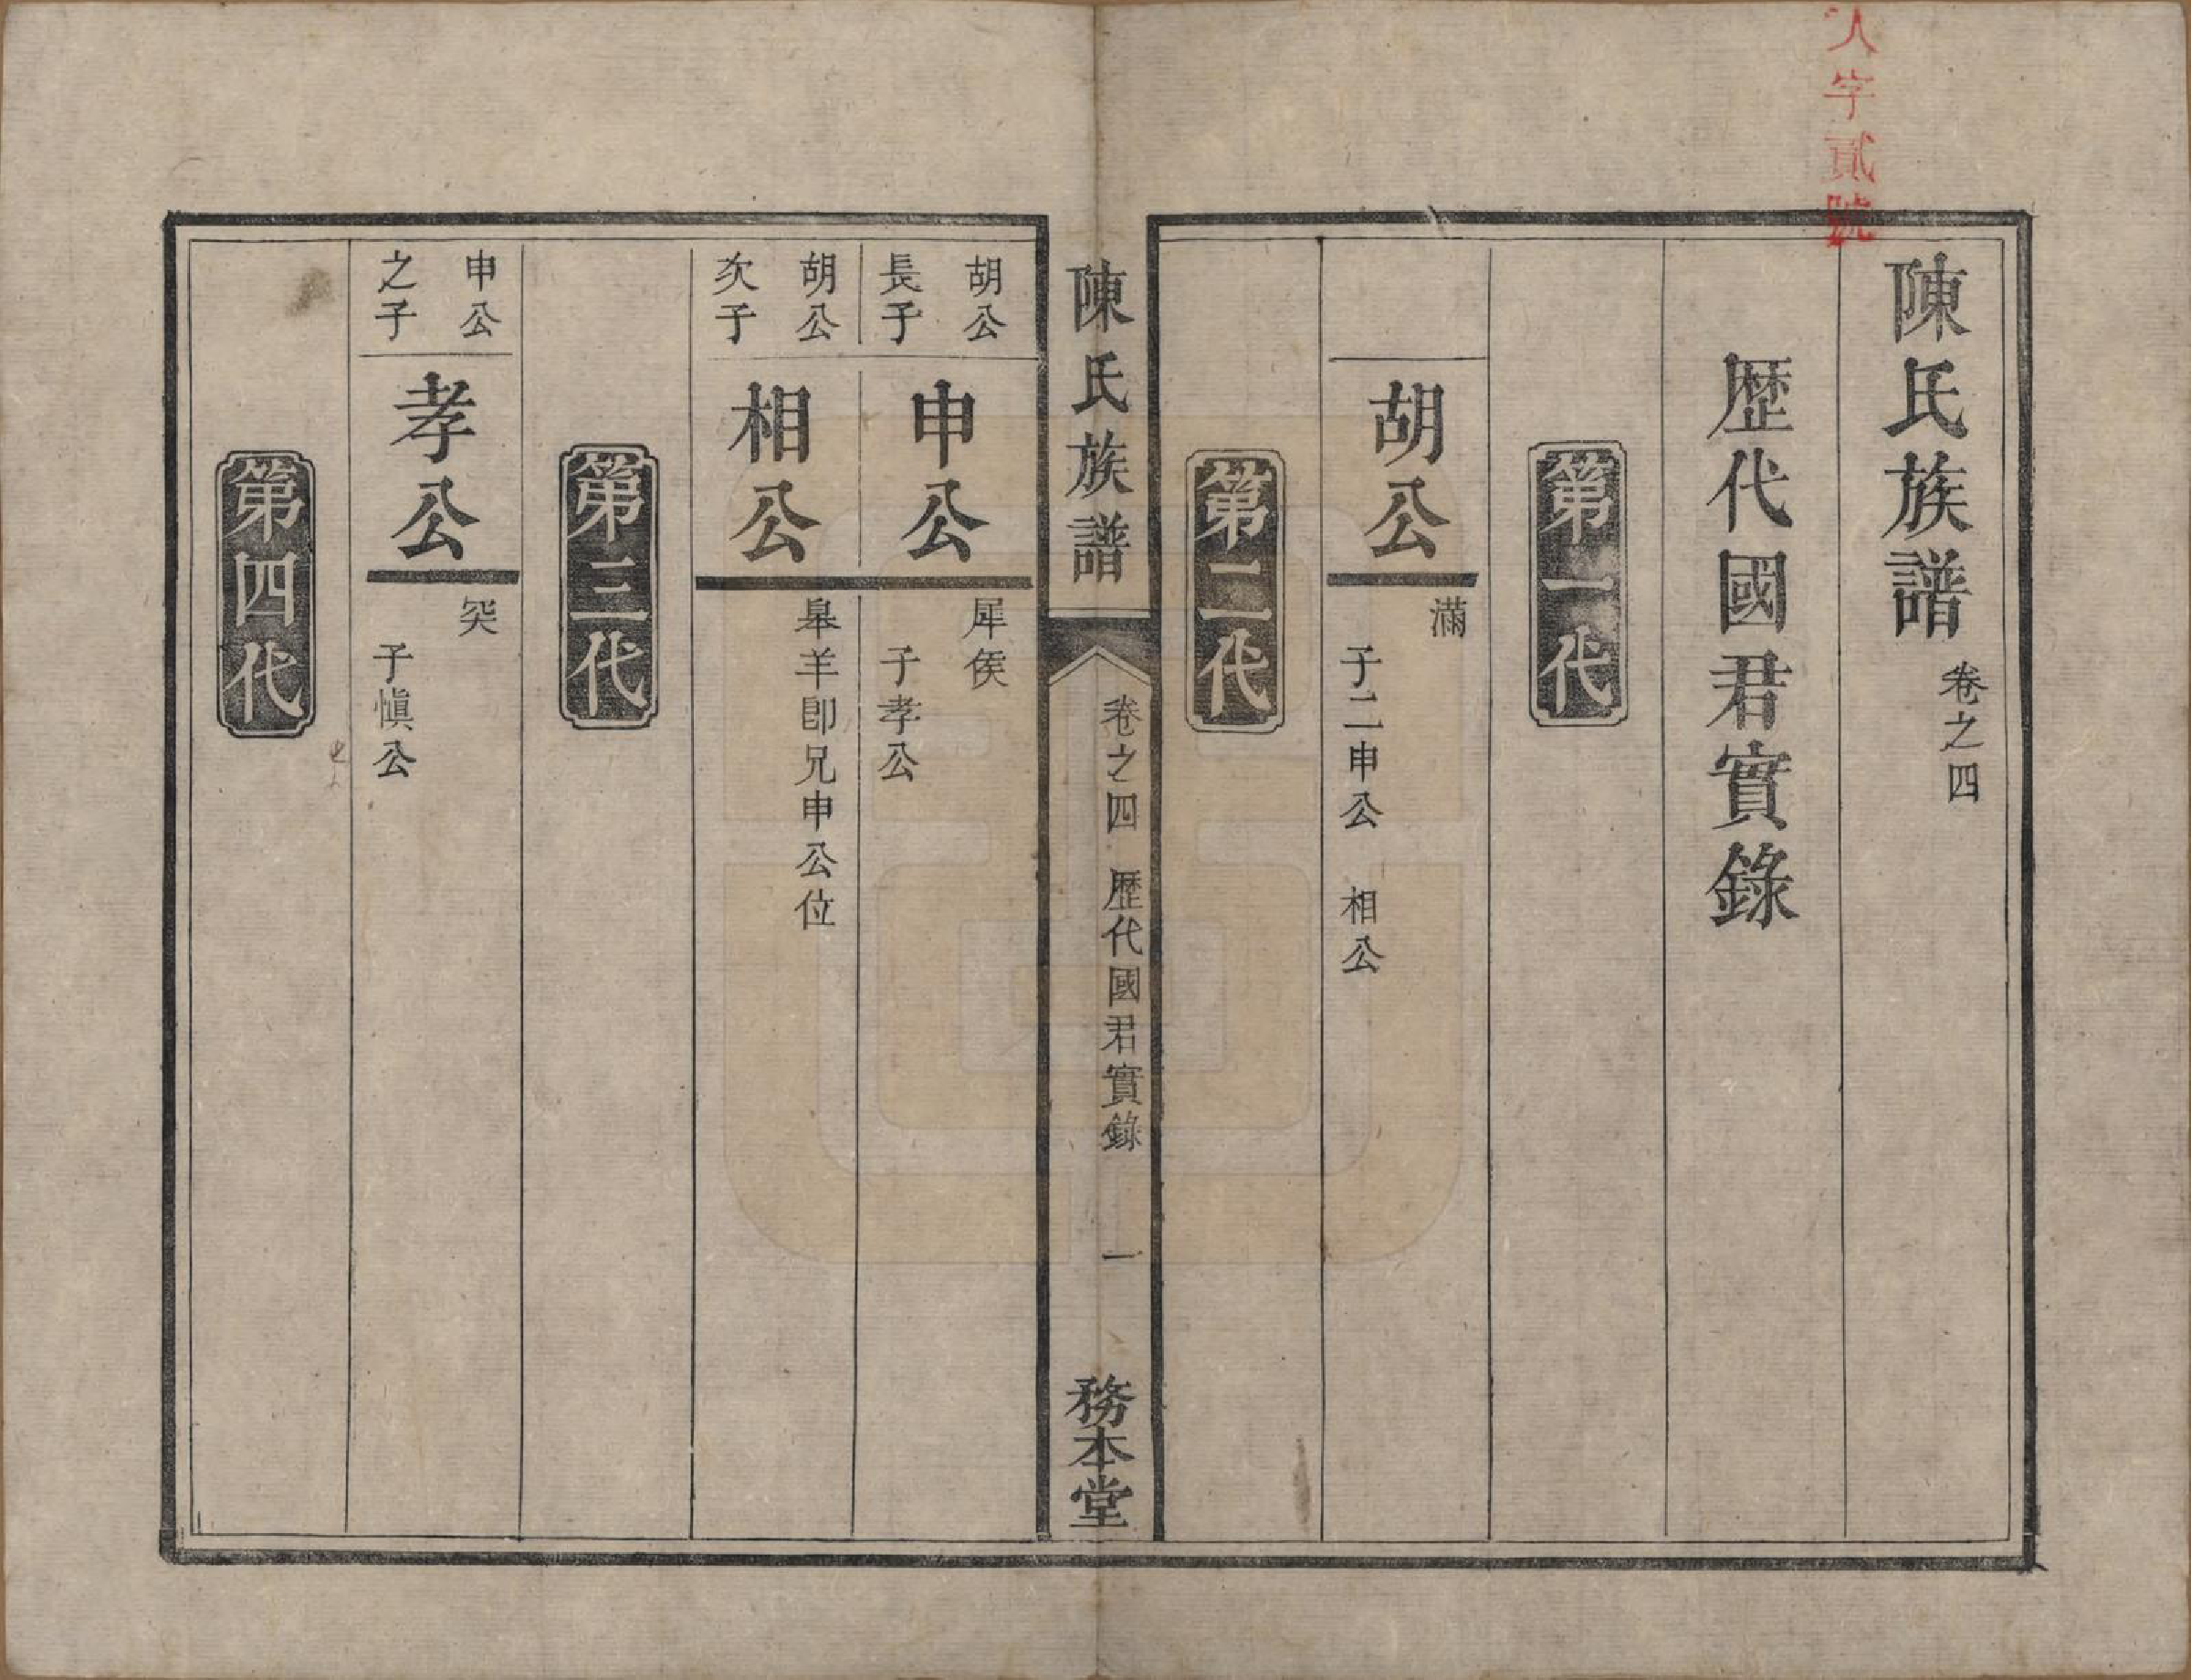 人字貳號
陳氏族譜 卷之四
歷代國君實錄
第一代
胡公 滿
子二申公 相公
第二代
陳氏族譜 卷之四 歷代國君實錄 一 務本堂
胡公
長子
申公 犀侯
子孝公
胡公
次子
相公 皋羊卽兄申公位
第三代
申公
之子
孝公 突
子愼公
第四代